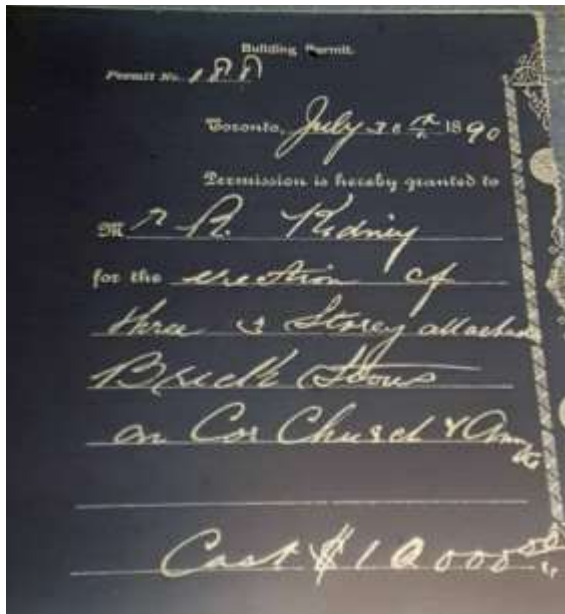 Building Permit.
Permit No. 188
Toronto, July 30th 1890
Permission is hereby granted to
Mr R. Kidney
for the erection of
three 3 Storey attached
Brick Stores
on Cor Church & Ann
Cost $10000.00